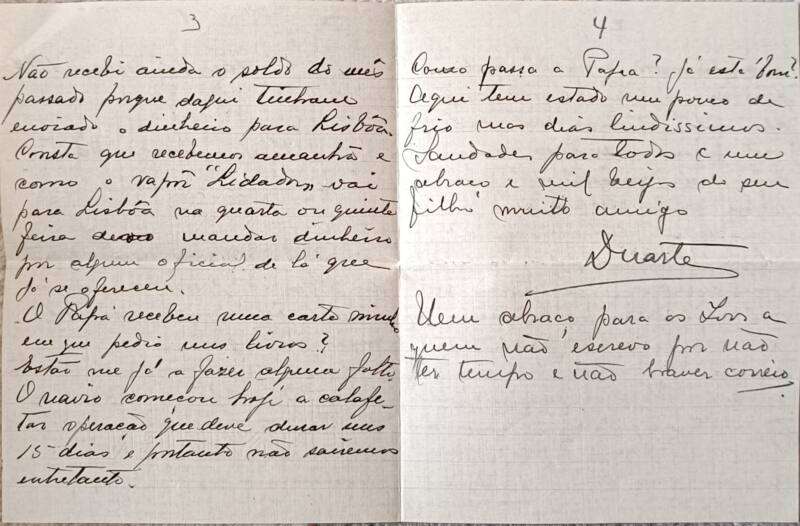 3
Não recebi ainda o soldo do mês
passado porque daqui tinham
enviado o dinheiro para Lisbôa.
Consta que recebemos amanhã e
como o vapôr "Lidador" vai
para Lisbôa na quarta ou quinta
feira devo mandar dinheiro
por algum oficial de lá que
já se ofereceu.
O Papá recebeu uma carta minha
em que pedia uns livros?
Estão me já a fazer alguma falta.
O navio começou hoje a calafe-
tar operação que deve durar uns
15 dias e portanto não sairemos
entretanto.
4
Como passa a Papra? Já está bom?
Aqui tem estado um pouco de
frio mas dias lindissimos.
Saudades para todos e um
abraço e mil beijos do seu
filho muito amigo
Duarte
Um abraço para os a
quem não escrevo por não
ter tempo e não haver correio.